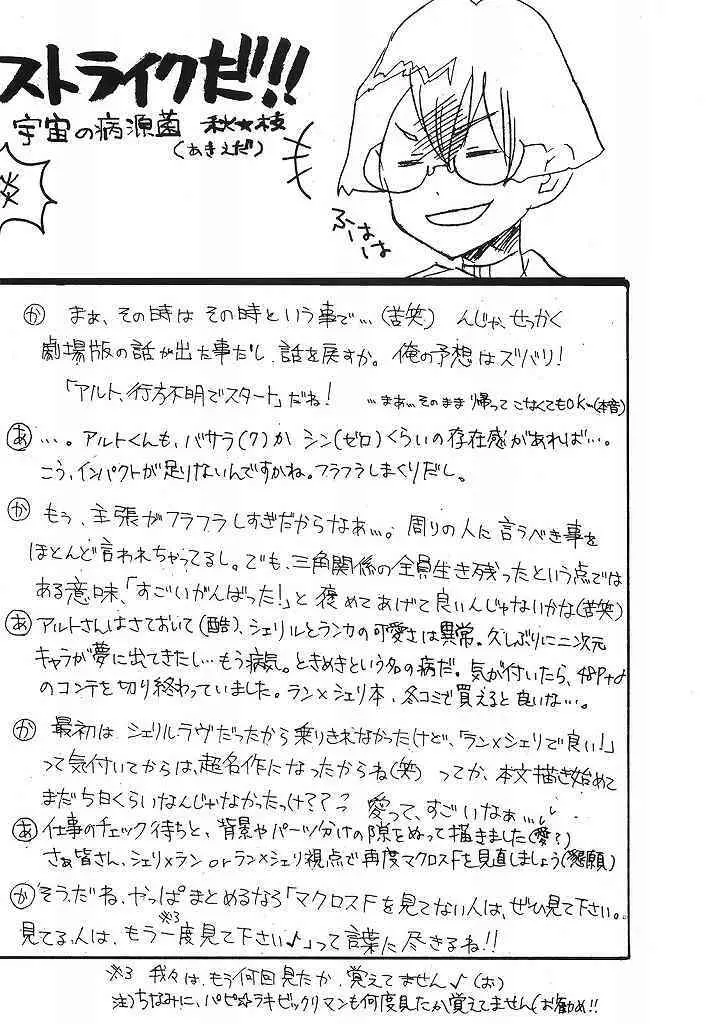 ストライクだ!!!
宇宙の病源菌 秋★枝
(あきえだ)
炎
ふーはーはーはー
か まぁ、その時は その時という事で…(苦笑) んじゃ、せっかく
劇場版の話が出た事だし、話を戻すか。俺の予想はズバリ!
「アルト、行方不明でスタート」だね! …まぁ…そのまま帰ってこなくてもOK…(本音)
あ …。アルトくんも、バサラ(7)か シン(ゼロ)くらいの存在感があれば…。
こう、インパクトが足りないんですかね。フラフラしまくりだし。
か もう、主張がフラフラしすぎだからなぁ…。周りの人に言うべき事を
ほとんど言われちゃってるし。でも、三角関係の全員生き残ったという点では
ある意味、「すごいがんばった!」と褒めてあげて良いんじゃないかな(苦笑)
あ アルトさんはさておいて(酷)、シェリルとランカの可愛さは異常。久しぶりに二次元
キャラが夢に出てきたし…もう病気。ときめきという名の病だ。気が付いたら、48P+α
のコンテを切り終わっていました。ラン×シェリ本、冬コミで買えると良いな…。
か 最初は シェリルラヴだったから乗りきれなかったけど、「ラン×シェリで良い!」
って気付いてからは、超名作になったからね(笑) ってか、本文描き始めて
まだ5日くらいなんじゃなかったっけ??? 愛って、すごいなぁ…
あ 仕事のチェック待ちと、背景やパーツ分けの隙をぬって描きました(愛?)
さぁ皆さん、シェリ×ラン or ラン×シェリ視点で再度マクロスFを見直しましょう(懇願)
か そうだね、やっぱまとめるなら「マクロスFを見てない人は、ぜひ見て下さい。
見てる人は、もう※3一度見て下さい♪」って言葉に尽きるね!!
※3 我々は、もう何回見たか、覚えてません♪(お)
注)ちなみに、パピ☆ラキビックリマンも何度見たか覚えてません(お勧め!!